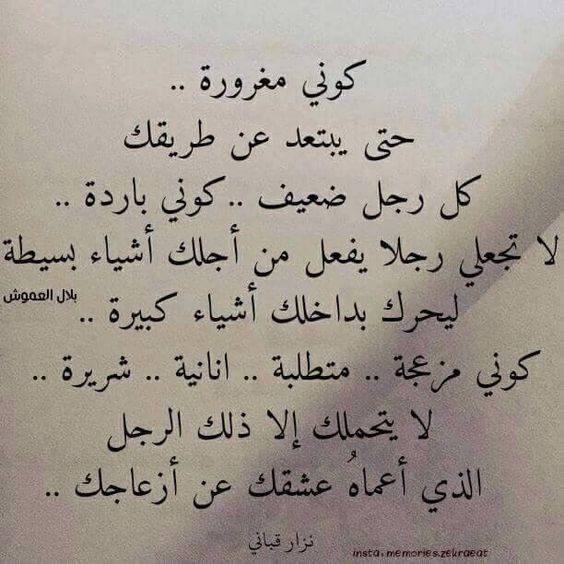 كوني مغرورة ..
حتى يبتعد عن طريقك
كل رجل ضعيف .. كوني باردة ..
لا تجعلي رجلا يفعل من أجلك أشياء بسيطة
ليحرك بداخلك أشياء كبيرة ..
بلال العموش
كوني مزعجة .. متطلبة .. انانية .. شريرة ..
لا يتحملك إلا ذلك الرجل
الذي أعماهُ عشقك عن أزعاجك ..
نزار قباني
insta: memories.zekraeat